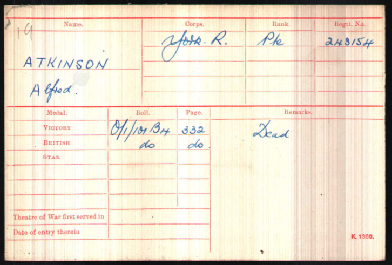 Name. Corps. Rank Regtl. No.
ATKINSON York. R. Pte 243154
Alfred.
Medal. Roll. Page. Remarks.
VICTORY O/1/101 B4 332 Dead
BRITISH do do.
STAR
Theatre of War first served in
Date of entry therein
K. 1380.